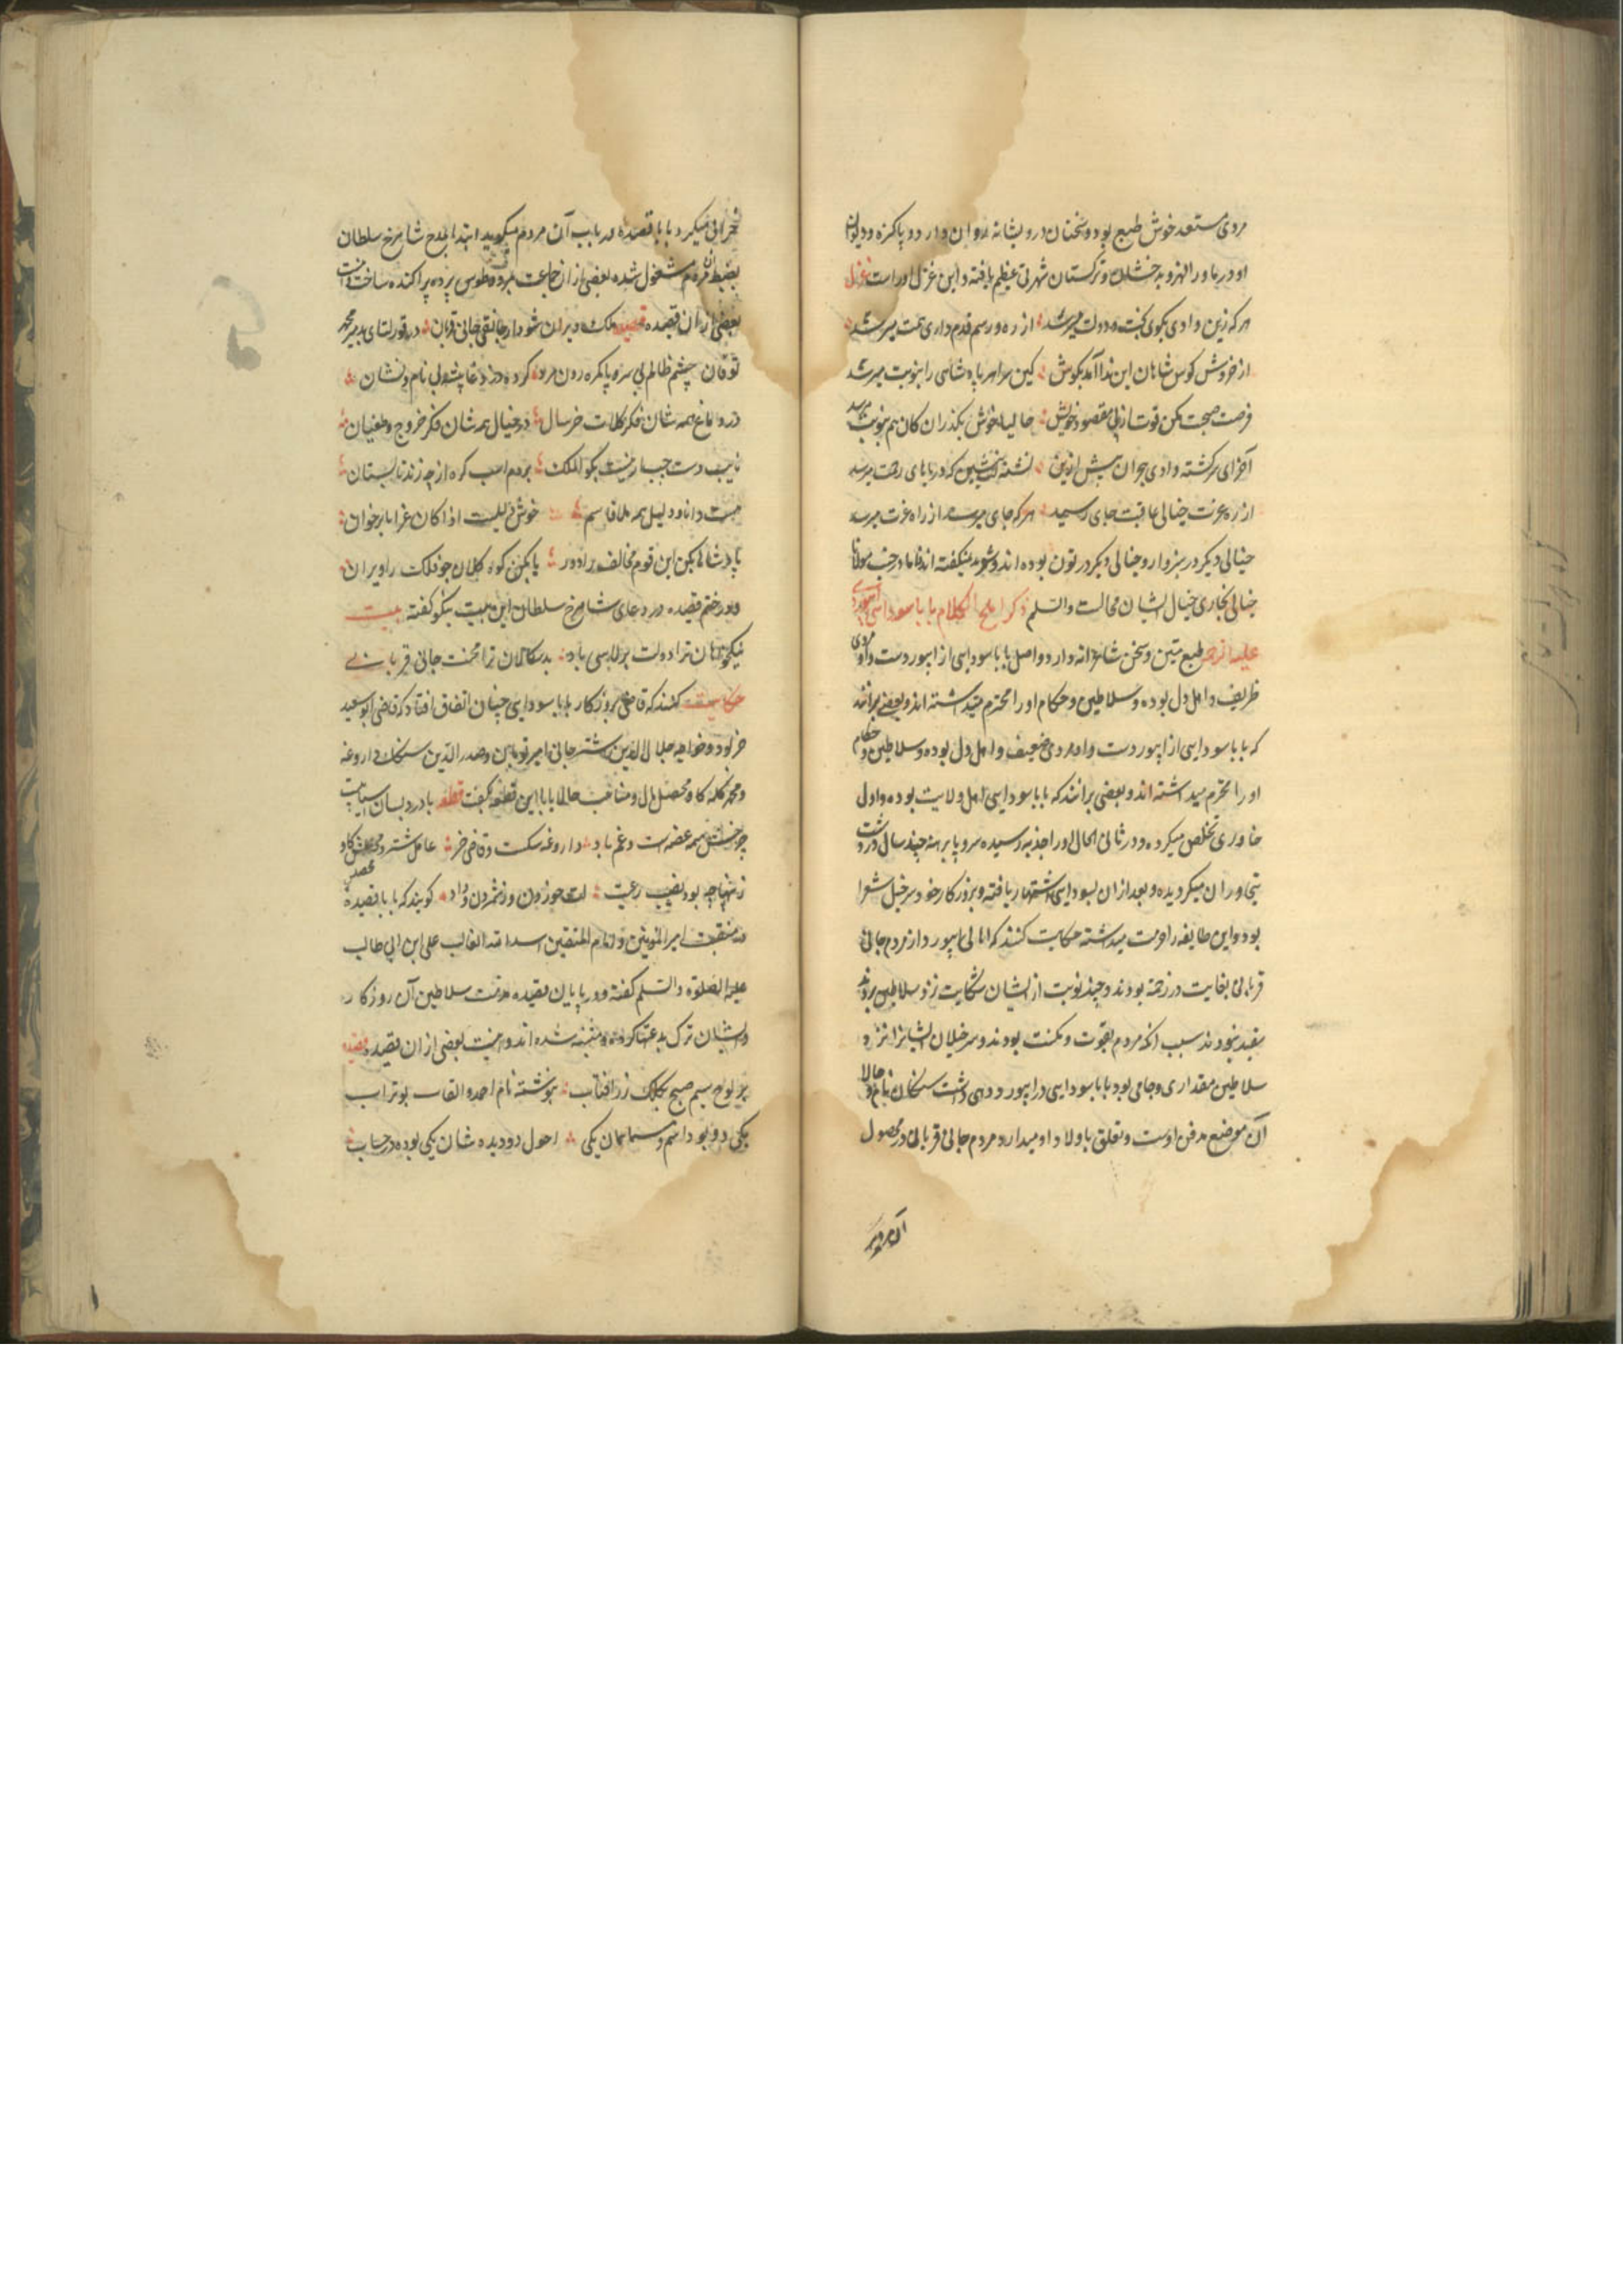 مردی مستعد خوش طبع بود و سخنان درویشانه روان دارد و پاکیزه و دیوان
او در ماورالنهر و بدخشان و ترکستان شهرتی عظیم یافته و این غزل اوراست غزل
هر که زین وادی بکوی بخت و دولت میرسد از ره و رسم قدم داری همت میرسد
از خروش کوس شاهان این ندا آمد بکوش کین سرا هر پادشاهی را بنوبت میرسد
فرصت صحبت مکن فوت از پی مقصود خویش حالیا خوش بگذران کان هم بنوبت میرسد
آخر ای سرکشته وادی هجران پیش ازین تشنه لب منشین که دریاهای رحمت میرسد
از ره عزت خیالی عاقبت جای رسید هر که جای میرسد از راه عزت میرسد
خیالی دیکر در سبزوار و خیالی دیکر در تون بوده اند و شعر نیکفته اند اما در جنب مولانا
خیالی بخاری خیال ایشان محالست والسلم ذکر املح الکلام بابا سودایی ابیوردی
علیه الرحمه طبع متین و سخن شاعرانه دارد و اصل بابا سودایی از ابیوردست و او مردی
ظریف و اهل دل بوده و سلاطین و حکام او را محترم میداشته اند و بعضی برانند
که بابا سودایی از ابیوردست و او مردی ضعیف و اهل دل بوده و سلاطین و حکام
او را محترم میداشته اند و بعضی برانند که بابا سودایی اهل ولایت بوده و اول
خاوری تخلص میکرده و در ثانی الحال او را جذبه رسیده سر و پا برهنه چند سال در دشت
خاوران میکردیده و بعد از ان بسودایی اشتهار یافته و بروزکار خود سر خیل شعرا
بود و این طایفه را حرمت میداشته حکایت کنند که اهالی ابیورد از مردم جانی
قربانی بغایت در زحمت بودند و چند نوبت از ایشان شکایت نزد سلاطین بردند
مفید نبود بسبب انکه مردم بقوت و مکنت بودند و سرخیلان ایشانرا نزد
سلاطین مقداری و جاهی بود بابا سودایی در ابیورد دهی داشت سنکان نام و حالا
آن موضع مدفن اوست و تعلق باولاد او میدارد و مردم جانی قربانی در محصول
آن مردم
خرابی میکرد بابا قصیده در باب آن مردم میکوید ابتدا بمدح شاهرخ سلطان
بضبط آن مردم مشغول شده بعضی از ان جماعت بمرو و طوس برده پراکنده ساخت و اینست
بعضی از ان قصیده قصیده ملک ویران شود از جانقی جانی قربان در قورلتای بدبیر محمد
توقان چشم ظالم بی سر و پا
در دماغ همه شان فکر کلات خرسال در خیال همه شان فکر خروج و طغیان
هست دانا و دلیل همه ملا قاسم خوش دلیلیست اذا کان غرابا برخوان
پادشاها بکن این قوم مخالف را دور یا بکن کوه کلان چو فلکت را ویران
و در ختم قصیده در دعای شاهرخ سلطان این بیت نیکو کفته بیت
نیکوخواهان ترا دولت برلاسی باد بدسکالان ترا محنت جانی قربانی
حکایت کنند که قاضی بروزکار بابا سودایی چنان اتفاق افتاد که قاضی ابو سعید
خر بود و خواجه جلال الدین شتر جانی امیر تومان و صدر الدین سک داروغه
و محمد کله کاو محصل مال و مناسب حال بابا این قطعه بکفت قطعه
همه غصه است و غم باد داروغه سکست و قاضی خر عامل شتر و محصلش کاو
زینها چه بود نصیب رعیت لت خوردن و زر شمردن و داد کویند که بابا قصیده
در منقبت امیر المومنین و امام المتقین اسد الله الغالب علی ابن ابی طالب
علیه الصلوة والسلم کفته و در پایان قصیده مذمت سلاطین آن روزکار
و ایشان ترک بدعتها کرده و متنبه شده اند و اینست بعضی از ان قصیده قصیده
بر لوح سیم صبح بکلک زر افتاب بنوشته نام احمد و القاب بوتراب
یکی دو بود اسم و مسماشان یکی احول دو دیده شان یکی بوده در حساب